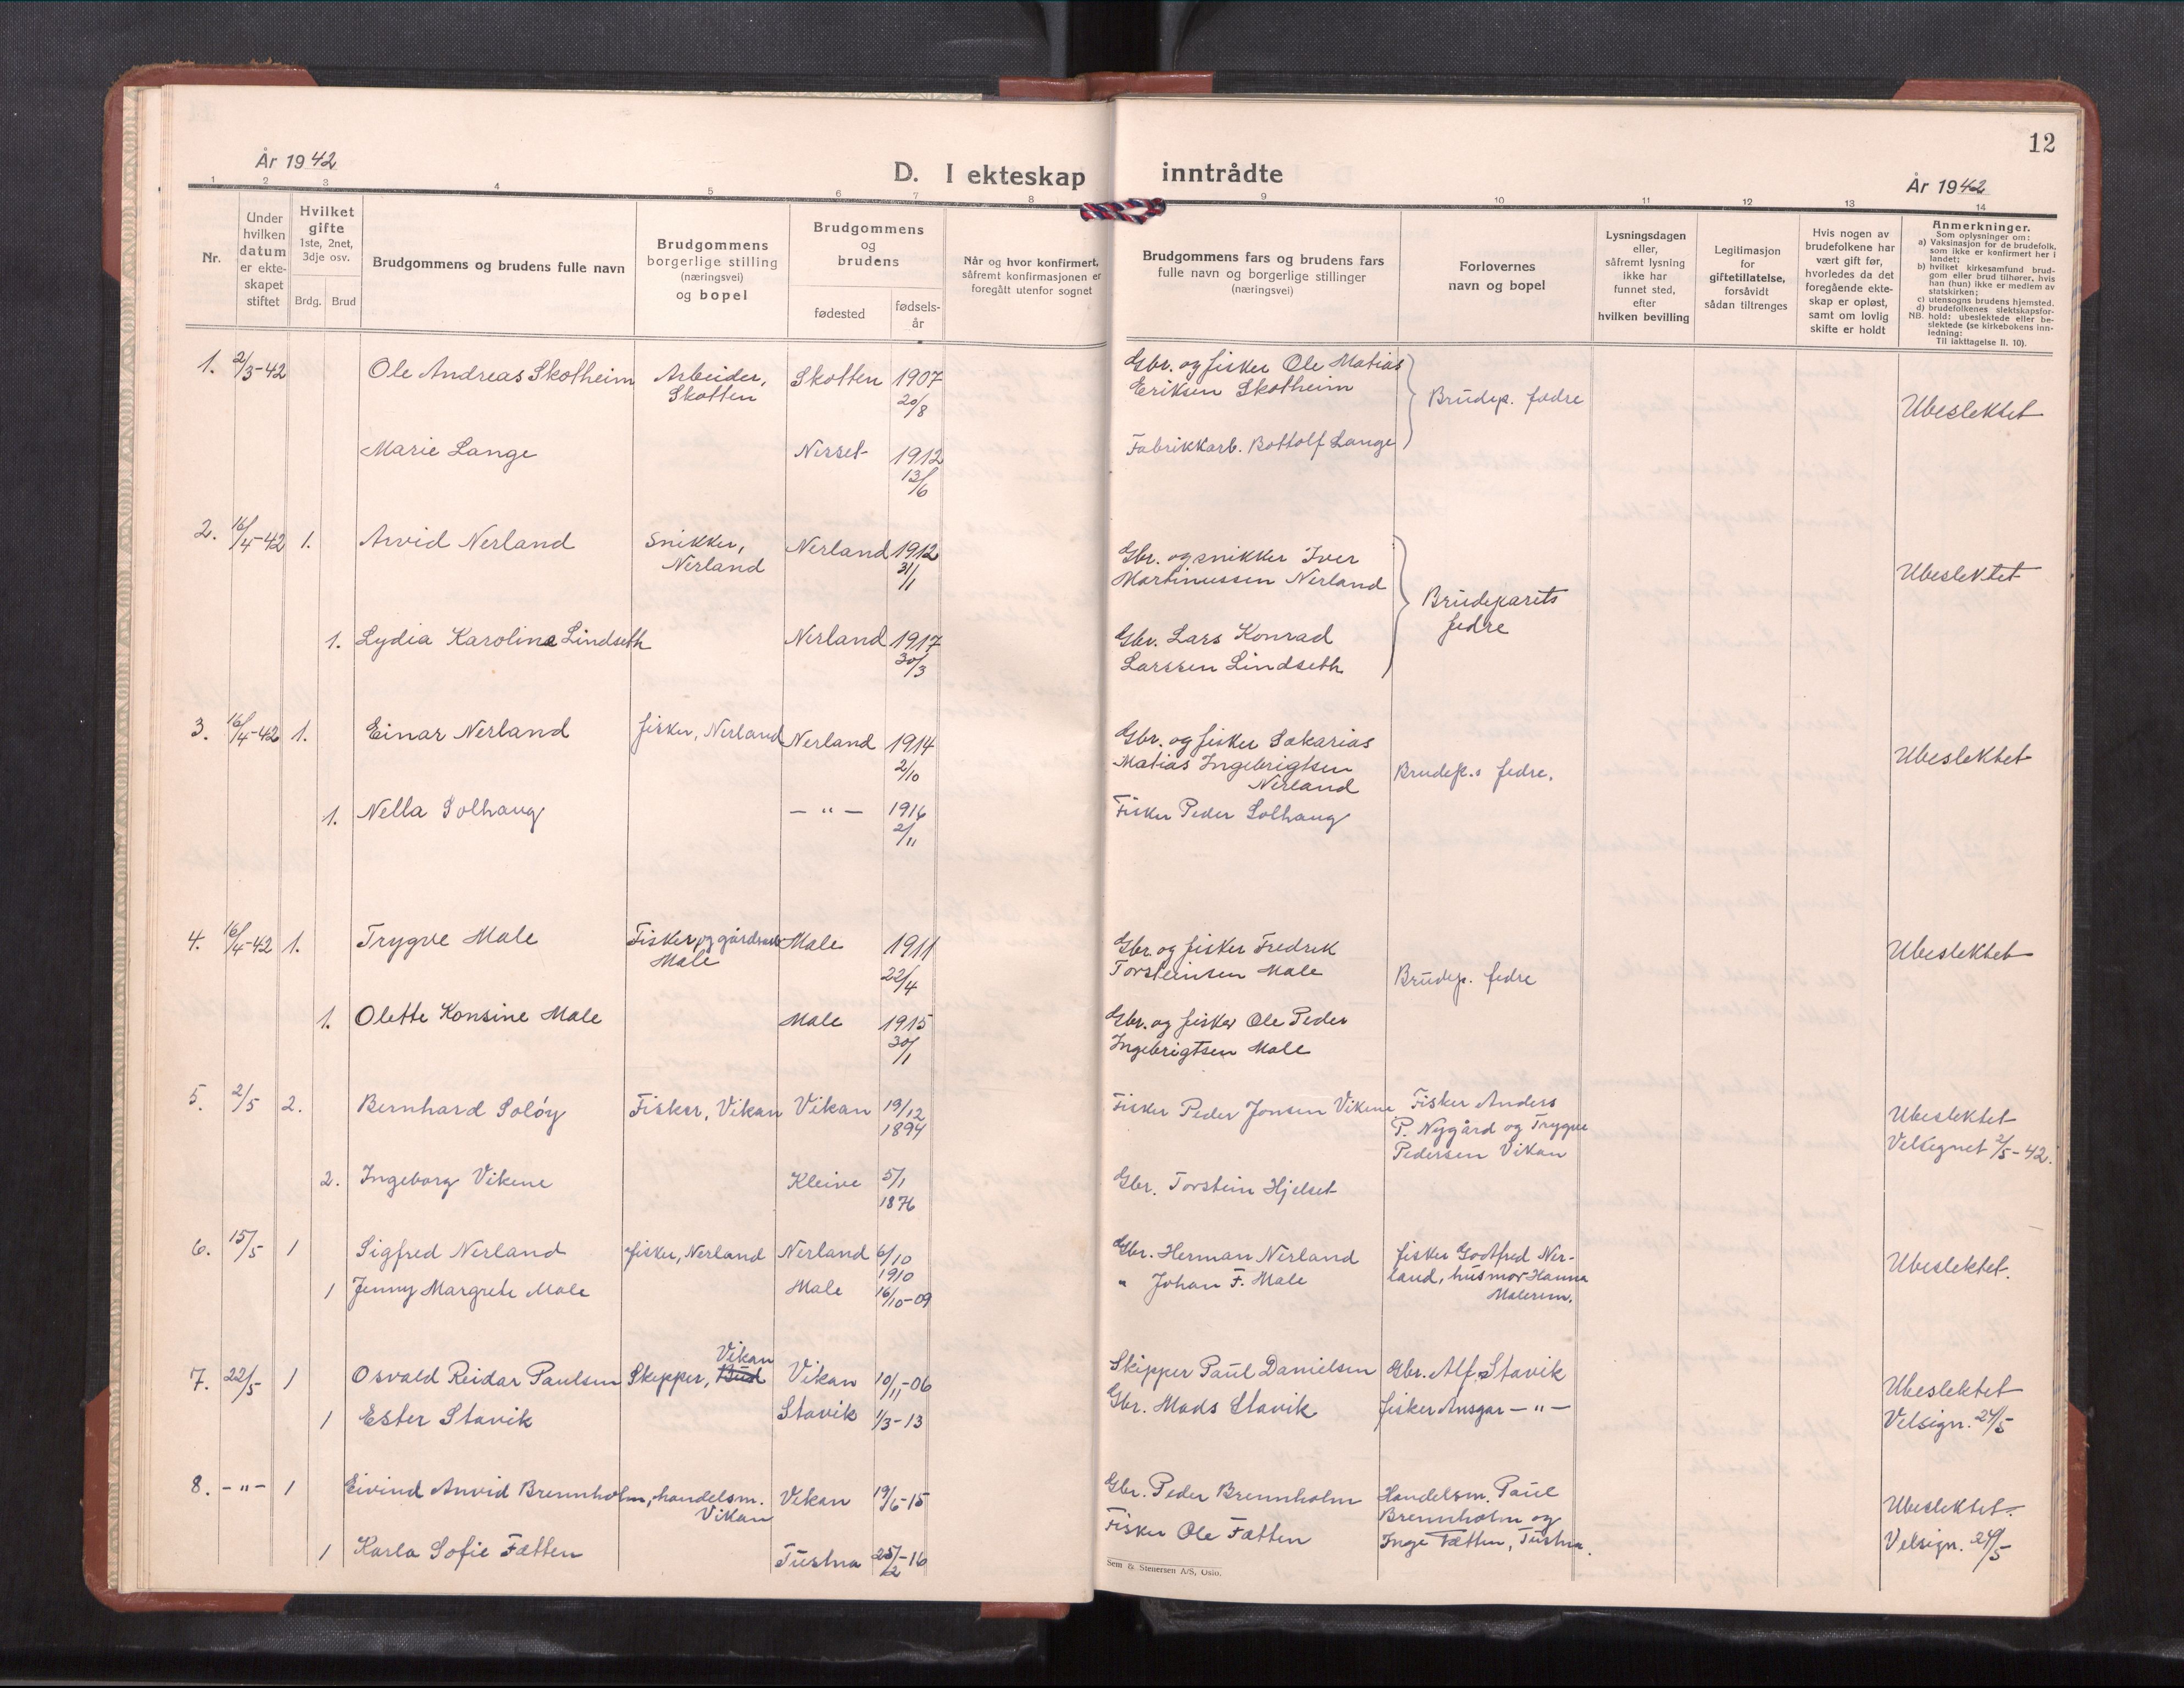 12
År 1942
D. I ekteskap inntrådte
År 1942
1 2 3 4 5 6 7 8 9 10 11 12 13 14
Nr.
Under
hvilken
datum
er ekte-
skapet
stiftet
Hvilket
gifte
1ste, 2net,
3dje osv.
Brdg. Brud
Brudgommens og brudens fulle navn
Brudgommens
borgerlige stilling
(næringsvei)
og bopel
Brudgommens
og
brudens
fødested
fødsels-
år
Når og hvor konfirmert,
såfremt konfirmasjonen er
foregått utenfor sognet
Brudgommens fars og brudens fars
fulle navn og borgerlige stillinger
(næringsvei)
Forlovernes
navn og bopel
Lysningsdagen
eller,
såfremt lysning
ikke har
funnet sted,
efter
hvilken bevilling
Legitimasjon
for
giftetillatelse,
forsåvidt
sådan tiltrenges
Hvis nogen av
brudefolkene har
vært gift før,
hvorledes da det
foregående ekte-
skap er opløst,
samt om lovlig
skifte er holdt
Anmerkninger.
Som oplysninger om:
a) Vaksinasjon for de brudefolk,
som ikke er konfirmert her i
landet;
b) hvilket kirkesamfund brud-
gom eller brud tilhører, hvis
han (hun) ikke er medlem av
statskirken;
c) utensogns brudens hjemsted.
d) brudefolkenes slektskapsfor-
NB. hold: ubeslektede eller be-
slektede (se kirkebokens inn-
ledning:
Til iakttagelse II. 10).
1. 2/3-42 Ole Andreas Skotheim Arbeider, Skotten 1907 Gbr. og fisker Ole Matias
Skotten 20/8 Eriksen Skotheim Brudep. fedre Ubeslektet
Marie Lange Nesset 1912 Fabrikkarb. Bottolf Lange
13/6
2. 16/4-42 1. Arvid Nerland Snikker, Nerland 1912 Gbr. og snikker Iver
Nerland 31/1 Martinussen Nerland Brudeparets Ubeslektet
fedre
1. Lydia Karoline Lindseth Nerland 1917 Gbr. Lars Konrad
30/3 Larssen Lindseth
3. 16/4-42 1. Einar Nerland fisker, Nerland Nerland 1914 Gbr. og fisker Sakarias Ubeslektet
2/10 Matias Ingebrigtsen Brudep.s fedre.
Nerland
1. Nella Solhaug — " — 1916 Fisker Peder Solhaug
2/11
4. 16/4-42 1. Trygve Male Fisker og gårdsarb Male 1911 Gbr. og fisker Fredrik Ubeslektet
Male 22/4 Torsteinsen Male Brudep. fedre
1. Olette Konsine Male Male 1915 Gbr. og fisker Ole Peder
30/1 Ingebrigtsen Male
5. 2/5 2. Bernhard Soløy Fisker, Vikan Vikan 19/12 Fisker Peder Jonsen Vikene Fisker Anders Ubeslektet
1894 P. Nygård og Trygve Velsignet 2/5-42.
Pedersen Vikan
2. Ingeborg Vikene Kleive 5/1 Gbr. Torstein Hjelset
1876
6. 15/5 1 Sigfred Nerland fisker, Nerland Nerland 6/10 Gbr. Herman Nerland fisker Godtfred Ner- Ubeslektet.
1910 land, husmor Hanna
1 Jenny Margrete Male Male 16/10-09 " Johan F. Male Malerem.
7. 22/5 1 Osvald Reidar Paulsen Skipper, Bud Vikan Vikan 10/11-06 Skipper Paul Danielsen Gbr. Alf Stavik Ubeslektet
1 Ester Stavik Stavik 1/3-13 Gbr. Mads Stavik fisker Ansgar — " — Velsign. 24/5
8. — " — 1 Eivind Anvid Brennholm, handelsm. Vikan 19/6-15 Gbr. Peder Brennholm Handelsm. Paul Ubeslektet.
Vikan Brennholm og
1 Karla Sofie Fætten Tustna 25/2-16 Fisker Ole Fætten Inge Fætten, Tustna. Velsign. 24/5
Sem & Stenersen A/S, Oslo.